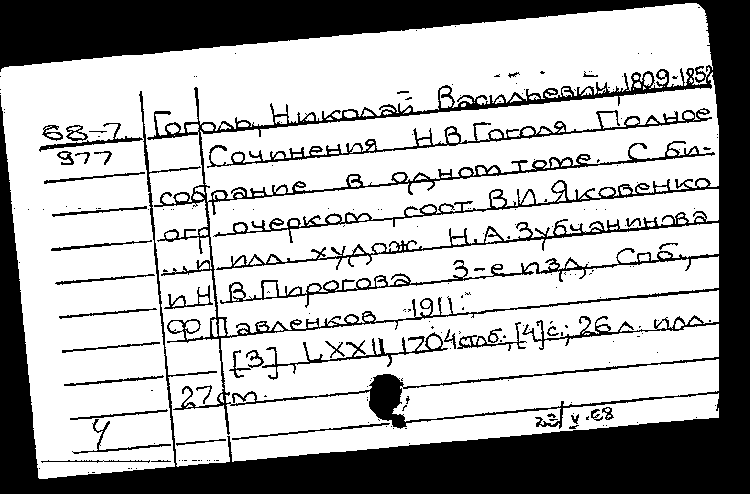 68-7. Гоголь, Николай Васильевич, 1809-1852
977 Сочинения Н.В.Гоголя. Полное
собрание в одном томе. С би-
огр. очерком, сост. В.И.Яковенко
...и илл. худож. Н.А.Зубчанинова
и Н.В.Пирогова. 3-е изд. Спб.,
Ф.Павленков, 1911.
[3], LXXII, 1704 стлб., [4]с.; 26 л. илл.
27 см.
Ч
23/V-68